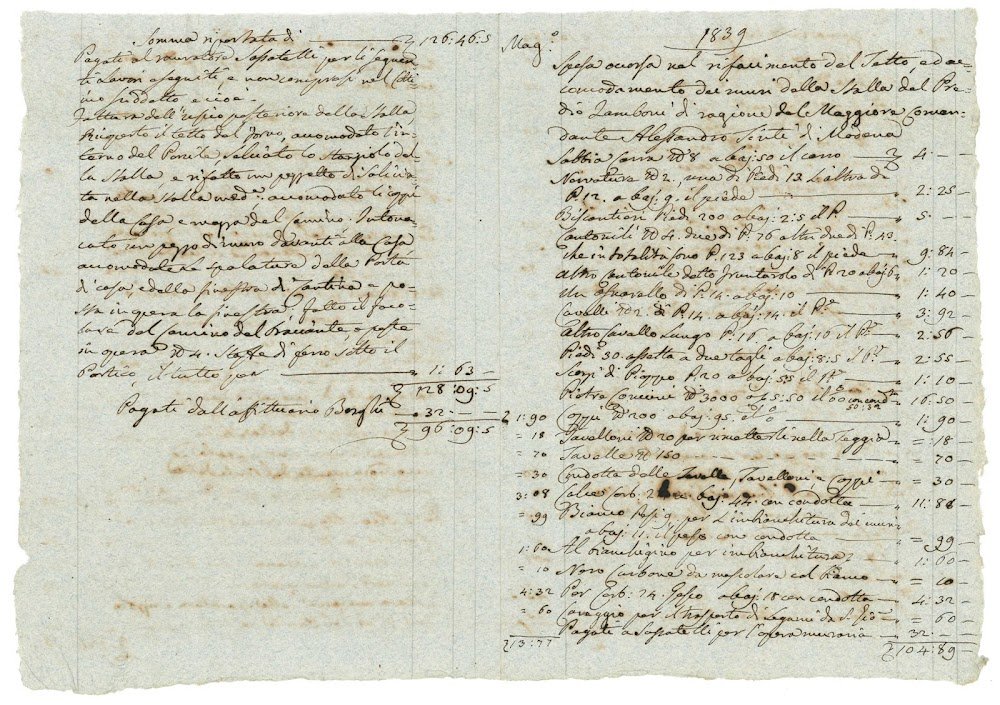 Somma riportata di — 126:46:5
Pagati al muratore Sassatelli per li seguen
ti Lavori eseguiti, e non compresi nel Otti
mo suddetto e cioè.
Fattura dell'uscio posteriore della Stalla,
Ricoperto il tetto del forno, accomodato l'in
terno del Porcile, selciato lo della
la Stalla, e rifatto un pezzetto di selicia
ta nella Stalla med.ª accomodato li coppi
della Casa e nappa del camino. Intona
cato un pezzo di muro davanti alla Casa
accomodate le spalature della Porta
di casa, e della finestra di Cantina e po
sta in opera la finestra, fatto il foco
lare col camino del Bracciante, e poste
in opera N° 4. Staffe di ferro sotto il
Portico, il tutto per — 1:63 —
128:09:5
Pagati dall'affittuario Borghi — 32 — —
96:09:5
1839
Mag.º
Spesa occorsa nel rifacimento del Tetto, ed ac
comodamento dei muri della Stalla del Pre
dio Zamboni di ragione del Maggiore Coman
dante Alessandro Tinti di Modena
Sabbia carra N° 8 a baj: 50 il carro — 4 — —
Nervature N° 2, una di Piedi 13 L'altra di
P. 12. a baj: 9. il piede — 2:25 —
Piedi 200 a baj: 2:5 il P. — 5 — —
Cantonili N° 4. due di P. 76 altri due di P. 43.
che in totalità sono P. 123 a baj: 8 il piede — 9:84 —
Altro cantonile detto di P. 20 a baj: 6 — 1:20 —
Un di P. 14. a baj: 10 — 1:40 —
Cavalle N° 2. di P. 14. a baj: 14. il P.e — 3:92 —
Altro Cavallo Lungo P. 16 a baj: 16 il P.e — 2:56 —
Piedi 30 assetta a due tagli a baj: 8:5 il P.e — 2:55 —
di Pioppo P. 20 a baj: 55 il — 1:10 —
Pietre Comune N° 3000 a 5:50 il — 16:50 —
1:90 Coppi N° 200 a baj: 95. il — 1:90 —
= 18 Tavelloni N° 20 per rimetterli nella — = 18 —
= 70 Tavelle N° 150 — = 70 —
= 30 Condotta delle Tavelle, Tavelloni e Coppi — = 30 —
3:08 Calce Corb: 2 a baj: 44 con condotta — 11:88 —
= 99 Bianco pesi 9. per L'imbianchitura dei muri
a baj: 11. il peso con condotta — = 99 —
1:60 Al bianchigino per imbianchitura — 1:60 —
= 10 Nero Carbone da mescolare col Bianco — = 10 —
4:32 Per Corb: 24 Gesso a baj: 18 con condotta — 4:32 —
= 60 per il trasporto di Legami da — = 60 —
Pagati a Sassatelli per l'opera muraria — 32 — —
13:77
104:89 —